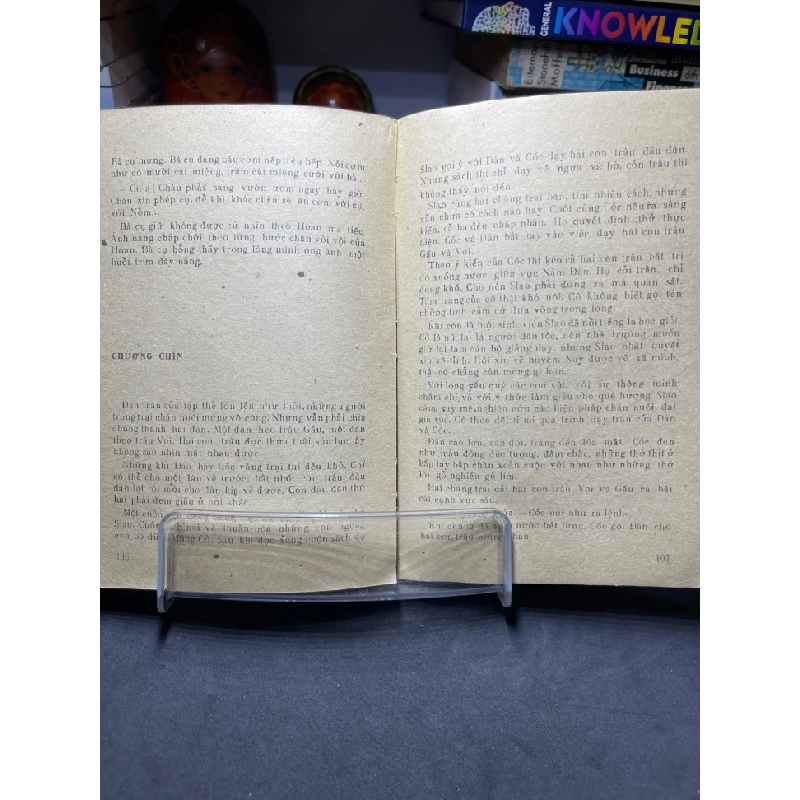 GENERAL
KNOWLED
Business 6th
Finance
Bà cụ mừng. Bà cụ đang nấu cơm nếp trên bếp. Nồi cơm
như có mười cái miệng, trăm cái miệng cười với bà.
Cháu phải sang vườn ươm ngay bây giờ.
Cháu xin phép cụ, để khi khác cháu sẽ ăn cơm với cụ,
với Nôm...
Bà cụ giữ không được cứ nhìn theo Hoan mà tiếc.
Ánh nắng chấp chới theo từng bước chân vội vội của
Hoan. Bà cụ bỗng thấy trong lòng mình ong ánh một
buổi sớm đầy nắng.
CHƯƠNG CHÍN
Đàn trâu của tập thể lớn lên như thổi, những người
trong trại chăn nuôi mừng vô cùng. Nhưng vẫn phải chia
chúng thành hai đàn. Một đàn theo trâu Gấu, một đàn
theo trâu Voi. Hai con trâu đực thừa tuổi sức lực ấy
không sao nhìn mặt nhau được.
Những khi Đán hay Cốc vắng trại thì đến khổ. Chỉ
có thể cho một đàn về trước, bắt nhốt con trâu đầu
đàn lại rồi mới cho đàn kia về được. Con đầu đàn thứ
hai phải đem giấu ở nơi khác.
Một cuốn
Slao. Cuốn sách nói về thuần hóa những con ngựa
Sau khi đọc xong cuốn sách đó
Slao gợi ý với Đán và Cốc dạy hai con trâu đầu đàn.
Nhưng sách thì chỉ dạy về ngựa và bò, còn trâu thì
không thấy nói đến.
Slao cùng hai chàng trai bàn, tìm nhiều cách, nhưng
vẫn chưa có cách nào hay. Cuối cùng Cốc nêu ra sáng
kiến, cả ba đều chấp nhận. Họ quyết định thử thực
hiện. Cốc và Đán bắt tay vào việc dạy hai con trâu
Gấu và Voi.
Theo ý kiến của Cốc thì kéo ra hai con trâu bất trị
có xuống nước giữa vực Nậm Đáo. Họ cởi trần, chỉ
đóng khố. Cho nên Slao phải đứng xa mà quan sát.
Tâm trạng của cô thật khó nói. Cô không biết gọi tên
những tình cảm cứ đưa võng trong lòng.
Khi còn là một sinh viên Slao đã nổi tiếng là học giỏi.
Cô là nữ lại là người dân tộc, nên nhà trường muốn
giữ lại làm cán bộ giảng dạy, nhưng Slao nhất quyết
xin về tỉnh. Rồi xin về huyện. Nay được về xã mình,
thật cô chẳng còn mong gì hơn.
Với lòng yêu quý các con vật, với sự thông minh
chăm chỉ, và với ý thức làm giàu cho quê hương, Slao
cặm cụi say mê nghiên cứu các biện pháp chăn nuôi đại
gia súc. Cô theo dõi tỉ mỉ quá trình dạy trâu của Đán
và Cốc.
Đán cao lớn, cân đối, trắng đến lóa mắt. Cốc đen
như mẫu đồng đúc tượng, đậm chắc, những thớ thịt ở
bắp tay bắp chân xoắn cuộn với nhau như những thớ
lõi gỗ nghiến gỗ lim.
Hai chàng trai cưỡi hai con trâu Voi và Gấu ra bãi
cát cạnh vực sâu.
Cốc nói như ra lệnh.
Khi chúng đã
Cốc gọi Đán cho
hai con trâu
107